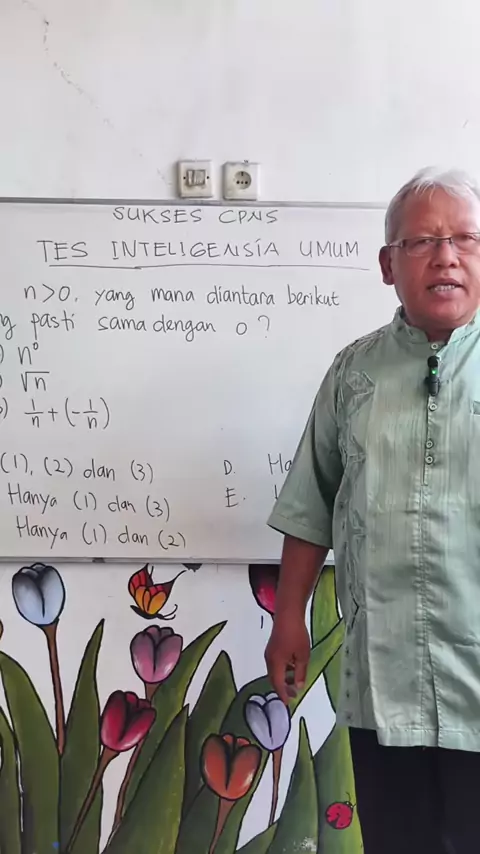 SUKSES CPNS
TES INTELIGENSIA UMUM
n>0, yang mana diantara berikut
pasti sama dengan 0?
n⁰
√n
1/n + (-1/n)
(1), (2) dan (3)
Hanya (1) dan (3)
Hanya (1) dan (2)
D.
E.